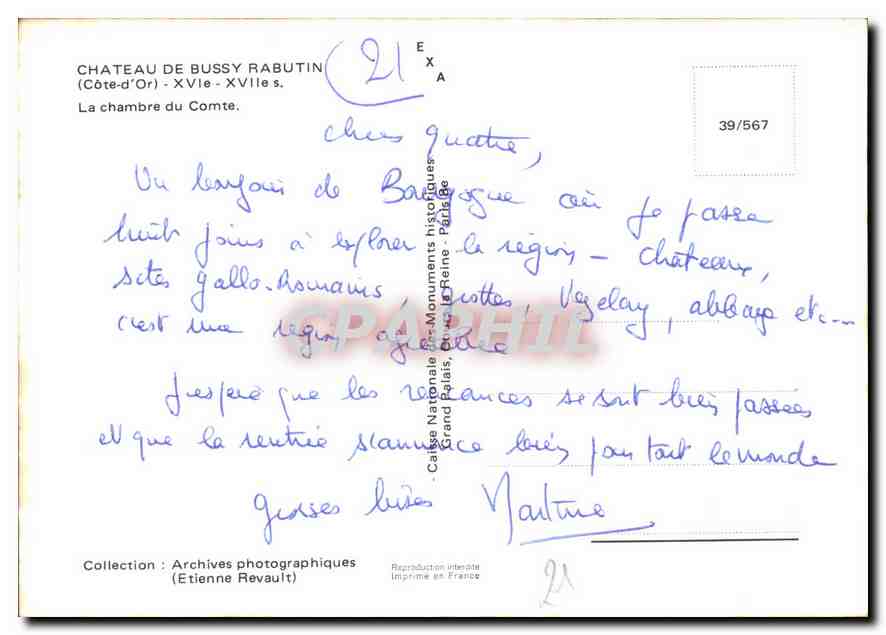 CHATEAU DE BUSSY RABUTIN
(Côte-d'Or) - XVIe - XVIIe s.
La chambre du Comte.
21
EXA
39/567
chers quatre,
Un bonjour de Bourgogne où je passe
huit jours à explorer la région - châteaux,
sites gallo-Romains, grottes, Vezelay, abbaye etc...
c'est une région agréable
J'espère que les vacances se sont bien passées
et que la rentrée s'annonce bien pour tout le monde
Grosses bises Martine
Caisse Nationale des Monuments historiques
Grand Palais, Cours la Reine - Paris 8e
CPAPHIL
Collection : Archives photographiques
(Etienne Revault)
Reproduction interdite
Imprimé en France
21